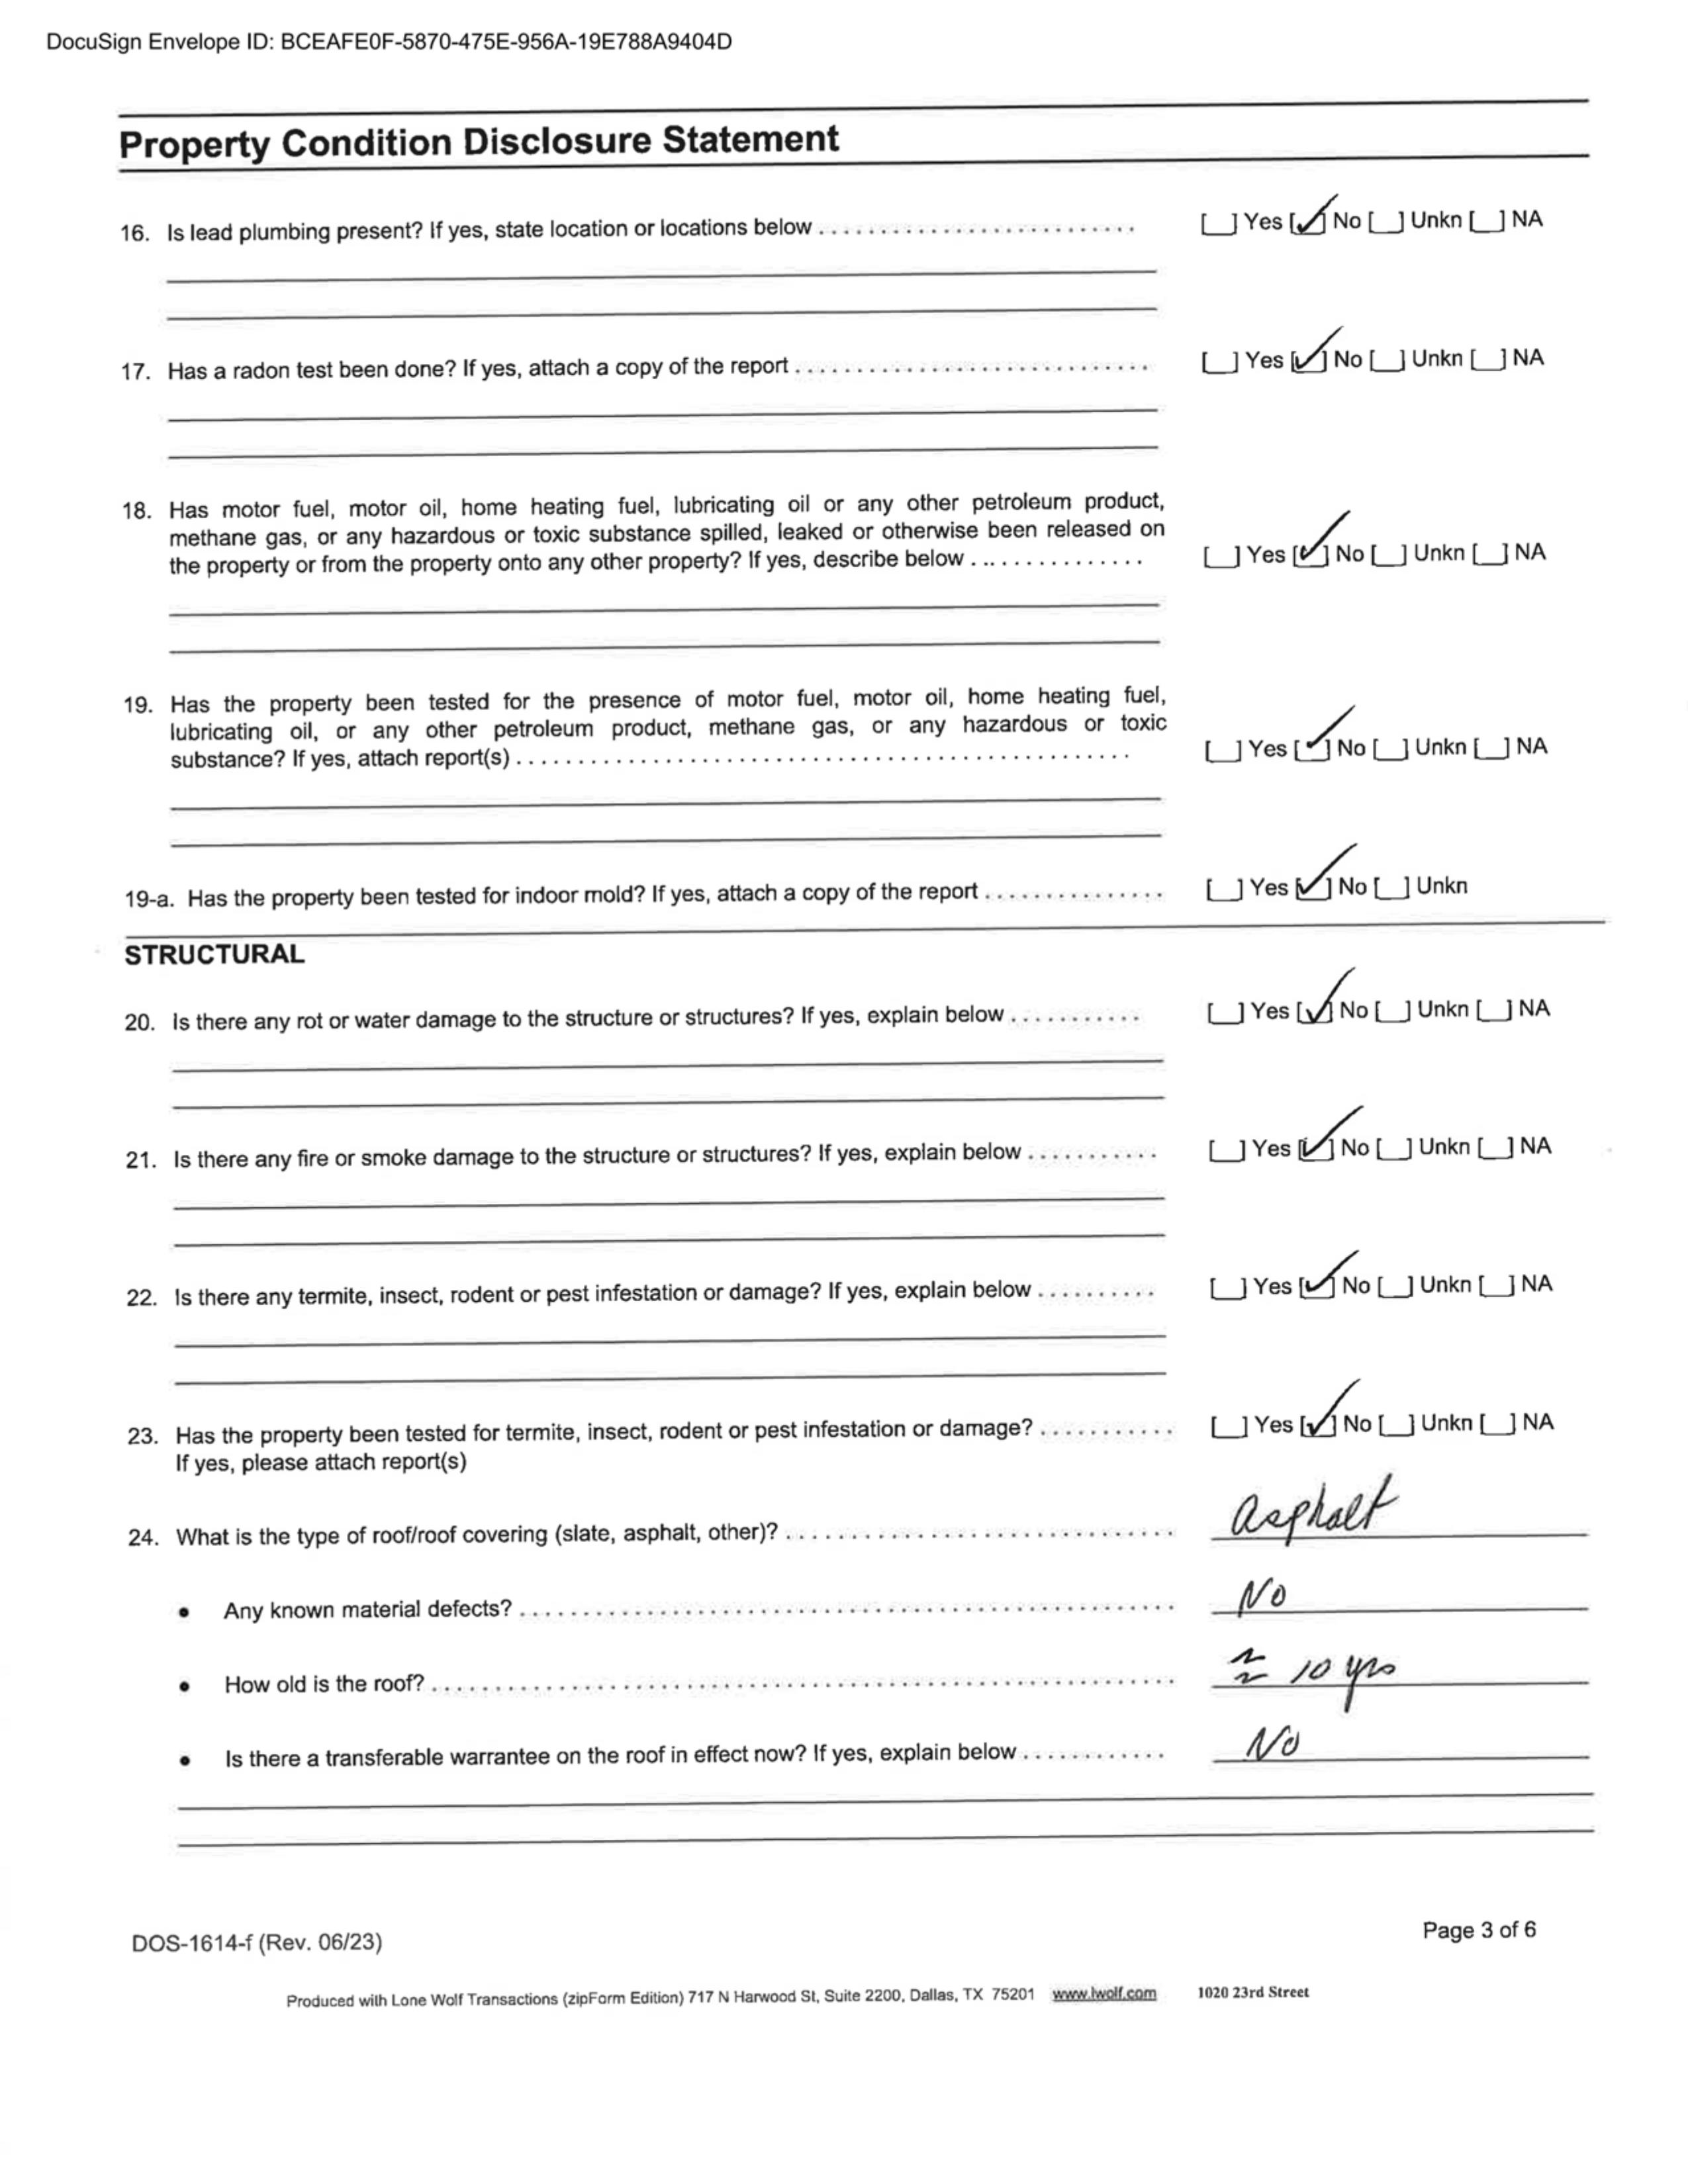 DocuSign Envelope ID: BCEAFE0F-5870-475E-956A-19E788A9404D
Property Condition Disclosure Statement
16. Is lead plumbing present? If yes, state location or locations below . . . . . . . . . . . . . . . . . . . . . . . . . . [ ] Yes [✓] No [ ] Unkn [ ] NA
17. Has a radon test been done? If yes, attach a copy of the report . . . . . . . . . . . . . . . . . . . . . . . . . . . . . [ ] Yes [✓] No [ ] Unkn [ ] NA
18. Has motor fuel, motor oil, home heating fuel, lubricating oil or any other petroleum product,
methane gas, or any hazardous or toxic substance spilled, leaked or otherwise been released on
the property or from the property onto any other property? If yes, describe below . . . . . . . . . . . . . . . [ ] Yes [✓] No [ ] Unkn [ ] NA
19. Has the property been tested for the presence of motor fuel, motor oil, home heating fuel,
lubricating oil, or any other petroleum product, methane gas, or any hazardous or toxic
substance? If yes, attach report(s) . . . . . . . . . . . . . . . . . . . . . . . . . . . . . . . . . . . . . . . . . . . . . . . . . . [ ] Yes [✓] No [ ] Unkn [ ] NA
19-a. Has the property been tested for indoor mold? If yes, attach a copy of the report . . . . . . . . . . . . . . . [ ] Yes [✓] No [ ] Unkn
STRUCTURAL
20. Is there any rot or water damage to the structure or structures? If yes, explain below . . . . . . . . . . . [ ] Yes [✓] No [ ] Unkn [ ] NA
21. Is there any fire or smoke damage to the structure or structures? If yes, explain below . . . . . . . . . . . [ ] Yes [✓] No [ ] Unkn [ ] NA
22. Is there any termite, insect, rodent or pest infestation or damage? If yes, explain below . . . . . . . . . . [ ] Yes [✓] No [ ] Unkn [ ] NA
23. Has the property been tested for termite, insect, rodent or pest infestation or damage? . . . . . . . . . . . [ ] Yes [✓] No [ ] Unkn [ ] NA
If yes, please attach report(s)
24. What is the type of roof/roof covering (slate, asphalt, other)? . . . . . . . . . . . . . . . . . . . . . . . . . . . . . . . . Asphalt
• Any known material defects? . . . . . . . . . . . . . . . . . . . . . . . . . . . . . . . . . . . . . . . . . . . . . . . . . . . . . No
• How old is the roof? . . . . . . . . . . . . . . . . . . . . . . . . . . . . . . . . . . . . . . . . . . . . . . . . . . . . . . . . . . . . ≈ 10 yrs
• Is there a transferable warrantee on the roof in effect now? If yes, explain below . . . . . . . . . . . . No
DOS-1614-f (Rev. 06/23)
Page 3 of 6
Produced with Lone Wolf Transactions (zipForm Edition) 717 N Harwood St, Suite 2200, Dallas, TX 75201 www.lwolf.com 1020 23rd Street